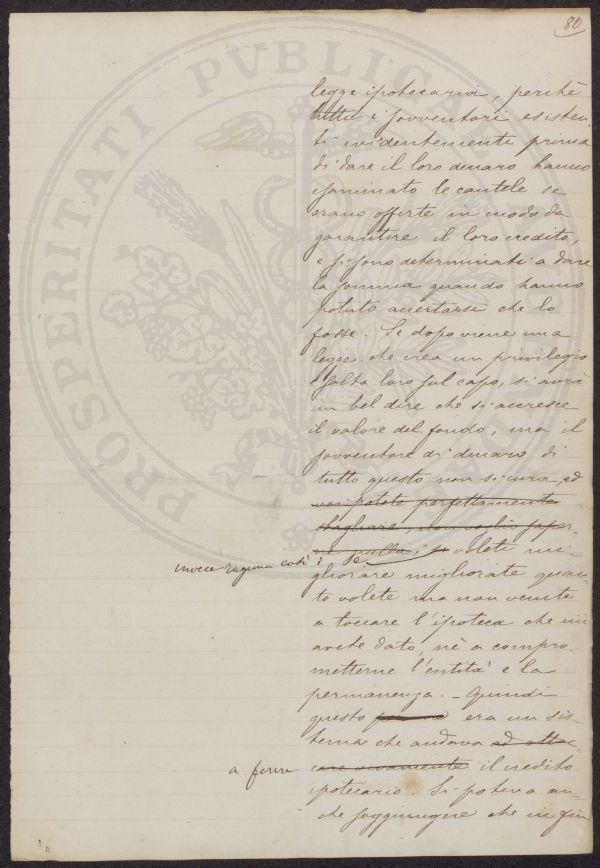 80
legge ipotecaria, perchè
tutti i sovventori esisten
ti evidentemente prima
di dare il loro denaro hanno
esaminato le cautele se
erano offerte in modo da
garantire il loro credito,
e si sono determinati a dare
la somma quando hanno
potuto accertarsi che lo
fosse. Se dopo viene una
legge che crea un privilegio
e salta loro sul capo, si avrà
un bel dire che si accresce
il valore del fondo, ma il
sovventore di denaro di
tutto questo non si cura, ed
voi potete perfettamente
sbagliare, non voglio saper-
ne nulla; se volete mi-
invece ragiona così: Se
gliorare migliorate quan-
to volete ma non venite
a toccare l'ipoteca che mi
avete dato, nè a compro-
metterne l'entità e la
permanenza. - Quindi
questo era un sis-
tema che andava ad attac-
care vivamente il credito
a ferire
ipotecario. Si poteva an-
che soggiungere che in fin
PROSPERITATI PVBLICAE